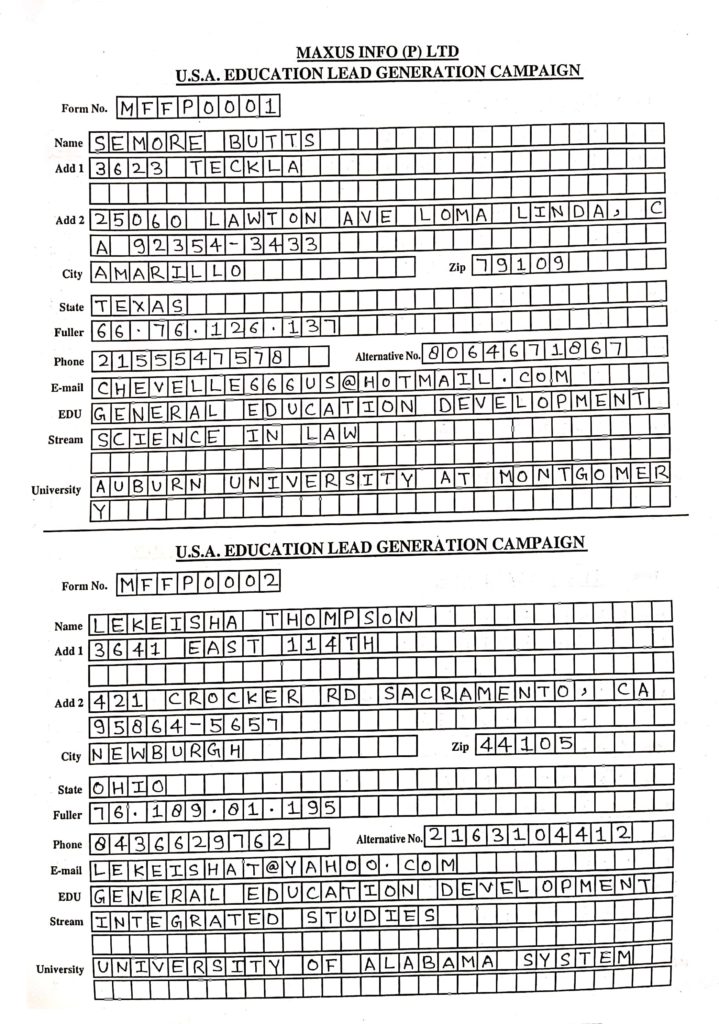 MAXUS INFO (P) LTD
U.S.A. EDUCATION LEAD GENERATION CAMPAIGN
Form No. MFFP0001
Name SEMORE BUTTS
Add 1 3623 TECKLA
Add 2 25060 LAWTON AVE LOMA LINDA, C
A 92354-3433
City AMARILLO Zip 79109
State TEXAS
Fuller 66.76.126.137
Phone 2155547578 Alternative No. 8064671867
E-mail CHEVELLE666US@HOTMAIL.COM
EDU GENERAL EDUCATION DEVELOPMENT
Stream SCIENCE IN LAW
University AUBURN UNIVERSITY AT MONTGOMER
Y
U.S.A. EDUCATION LEAD GENERATION CAMPAIGN
Form No. MFFP0002
Name LEKEISHA THOMPSON
Add 1 3641 EAST 114TH
Add 2 421 CROCKER RD SACRAMENTO, CA
95864-5657
City NEWBURGH Zip 44105
State OHIO
Fuller 76.189.81.195
Phone 8436629762 Alternative No. 2163104412
E-mail LEKEISHAT@YAHOO.COM
EDU GENERAL EDUCATION DEVELOPMENT
Stream INTEGRATED STUDIES
University UNIVERSITY OF ALABAMA SYSTEM